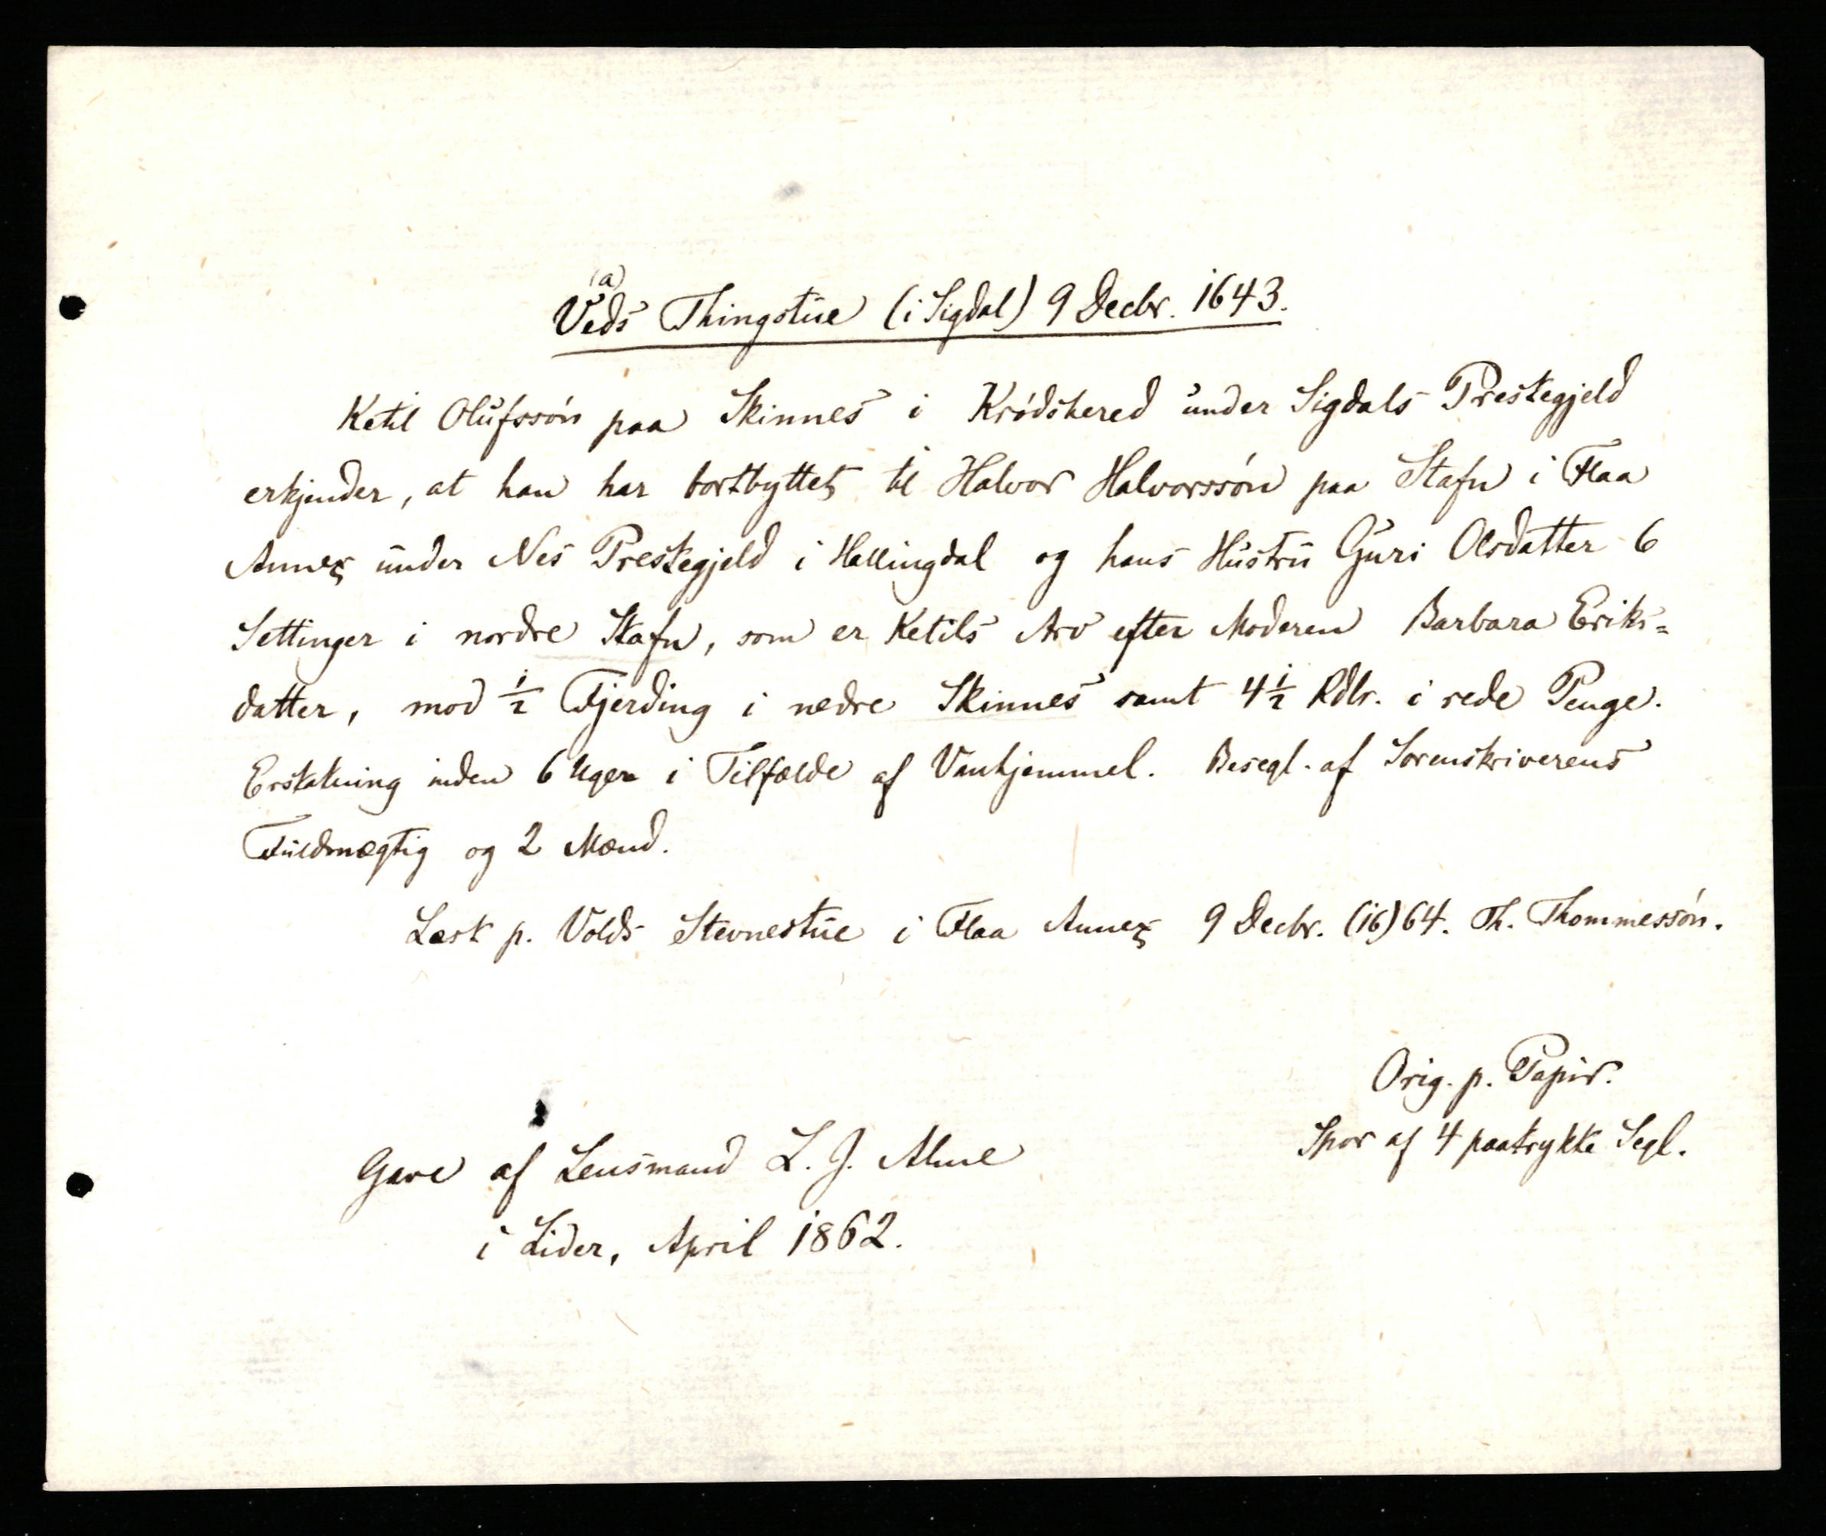 (a)
Veds Thingstue (i Sigdal) 9 Decbr. 1643.
Ketil Olufssøn paa Skinnes i Krødshered under Sigdals Prestegjeld
erkjender, at han har bortbyttet til Halvor Halvorssøn paa Stafn i Flaa
Annex under Nes Prestegjeld i Hallingdal og hans Hustru Guri Olsdatter 6
Settinger i nordre Stafn, som er Ketils Arv efter Moderen Barbara Eriks=
datter, mod ½ Fjerding i nedre Skinnes samt 4½ Rdlr. i rede Penge.
Erstatning inden 6 Uger i Tilfælde af Vanhjemmel. Besegl. af Sorenskriverens
Fuldmægtig og 2 Mænd.
Læst p. Volds Stevnestue i Flaa Annex 9 Decbr. (16)64. Th. Thommessøn.
Orig. p. Papir.
Spor af 4 paatrykte Segl.
Gave af Lensmand L. J. Alme
i Lider, April 1862.